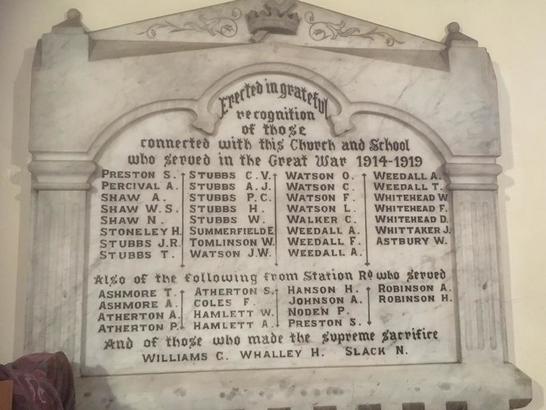 Erected in grateful
recognition
of those
connected with this Church and School
who served in the Great War 1914-1919
PRESTON S.
PERCIVAL A.
SHAW A.
SHAW W.S.
SHAW N.
STONELEY H.
STUBBS J.R.
STUBBS T.
STUBBS C.V.
STUBBS A.J.
STUBBS P.C.
STUBBS H.
STUBBS W.
SUMMERFIELD E.
TOMLINSON W.
WATSON J.W.
WATSON O.
WATSON C.
WATSON F.
WATSON L.
WALKER C.
WEEDALL A.
WEEDALL F.
WEEDALL A.
WEEDALL A.
WEEDALL T.
WHITEHEAD W.
WHITEHEAD F.
WHITEHEAD D.
WHITTAKER J.
ASTBURY W.
Also of the following from Station Rd who served
ASHMORE T.
ASHMORE A.
ATHERTON A.
ATHERTON P.
ATHERTON S.
COLES F.
HAMLETT W.
HAMLETT A.
HANSON H.
JOHNSON A.
NODEN P.
PRESTON S.
ROBINSON A.
ROBINSON H.
And of those who made the supreme sacrifice
WILLIAMS C. WHALLEY H. SLACK N.